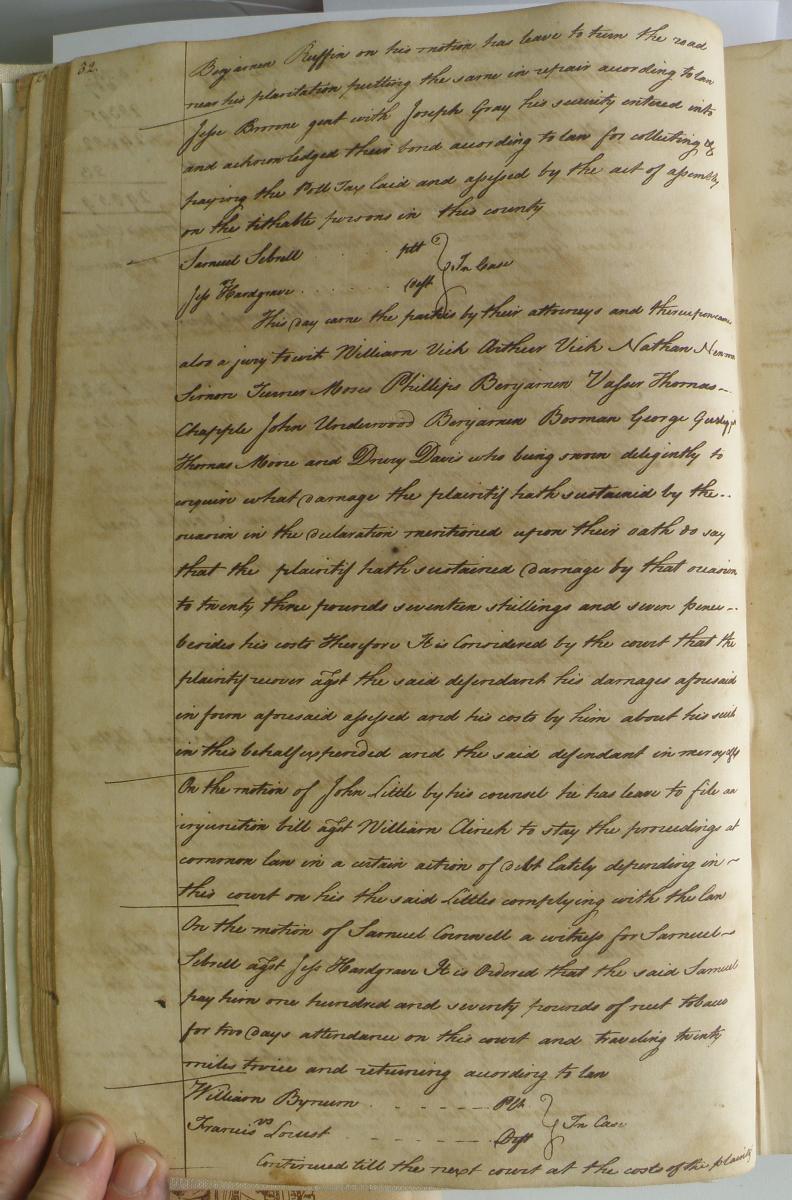 32.
Benjamen Ruffin on his motion has leave to turn the road
near his plantation putting the same in repair according to law
Jesse Browne gent with Joseph Gray his security entered into
and acknowledged their bond according to law for collecting &
paying the Poll Tax laid and assessed by the act of assembly
on the tithable persons in this county
Samuel Sebrell . . . . pltf
vs } In Case
Jess Hardgrave . . . . . Deft
This day came the parties by their attorneys and thereupon came
also a jury to wit William Vick Arther Vick Nathan
Simon Turner Moses Phillips Benjamen Vasser Thomas
Chapple John Underwood Benjamen Borman George
Thomas Moore and Drury Davis who being sworn diligently to
inquire what damage the plaintif hath sustained by the
occasion in the declaration mentioned upon their oath do say
that the plaintif hath sustained damage by that occasion
to twenty three pounds seventeen shillings and seven pence
besides his costs Therefore It is Considered by the court that the
plaintif recover agst the said defendant his damages aforesaid
in form aforesaid assessed and his costs by him about his suit
in this behalf expended and the said defendant in mercy &c
On the motion of John Little by his counsel he has leave to file an
injunction bill agst William Clinch to stay the proceedings at
common law in a certain action of debt lately depending in
this court on his the said Littles complying with the law
On the motion of Samuel Cornwell a witness for Samuel
Sebrell agst Jess Hardgrave It is Ordered that the said Samuel
pay him one hundred and seventy pounds of neet tobacco
for two days attendance on this court and traveling twenty
miles twice and returning according to law
William Bynum . - - - - - Plt
vs } In Case
Francis Locust - - - - - Deft
Continued till the next court at the costs of the plaintif